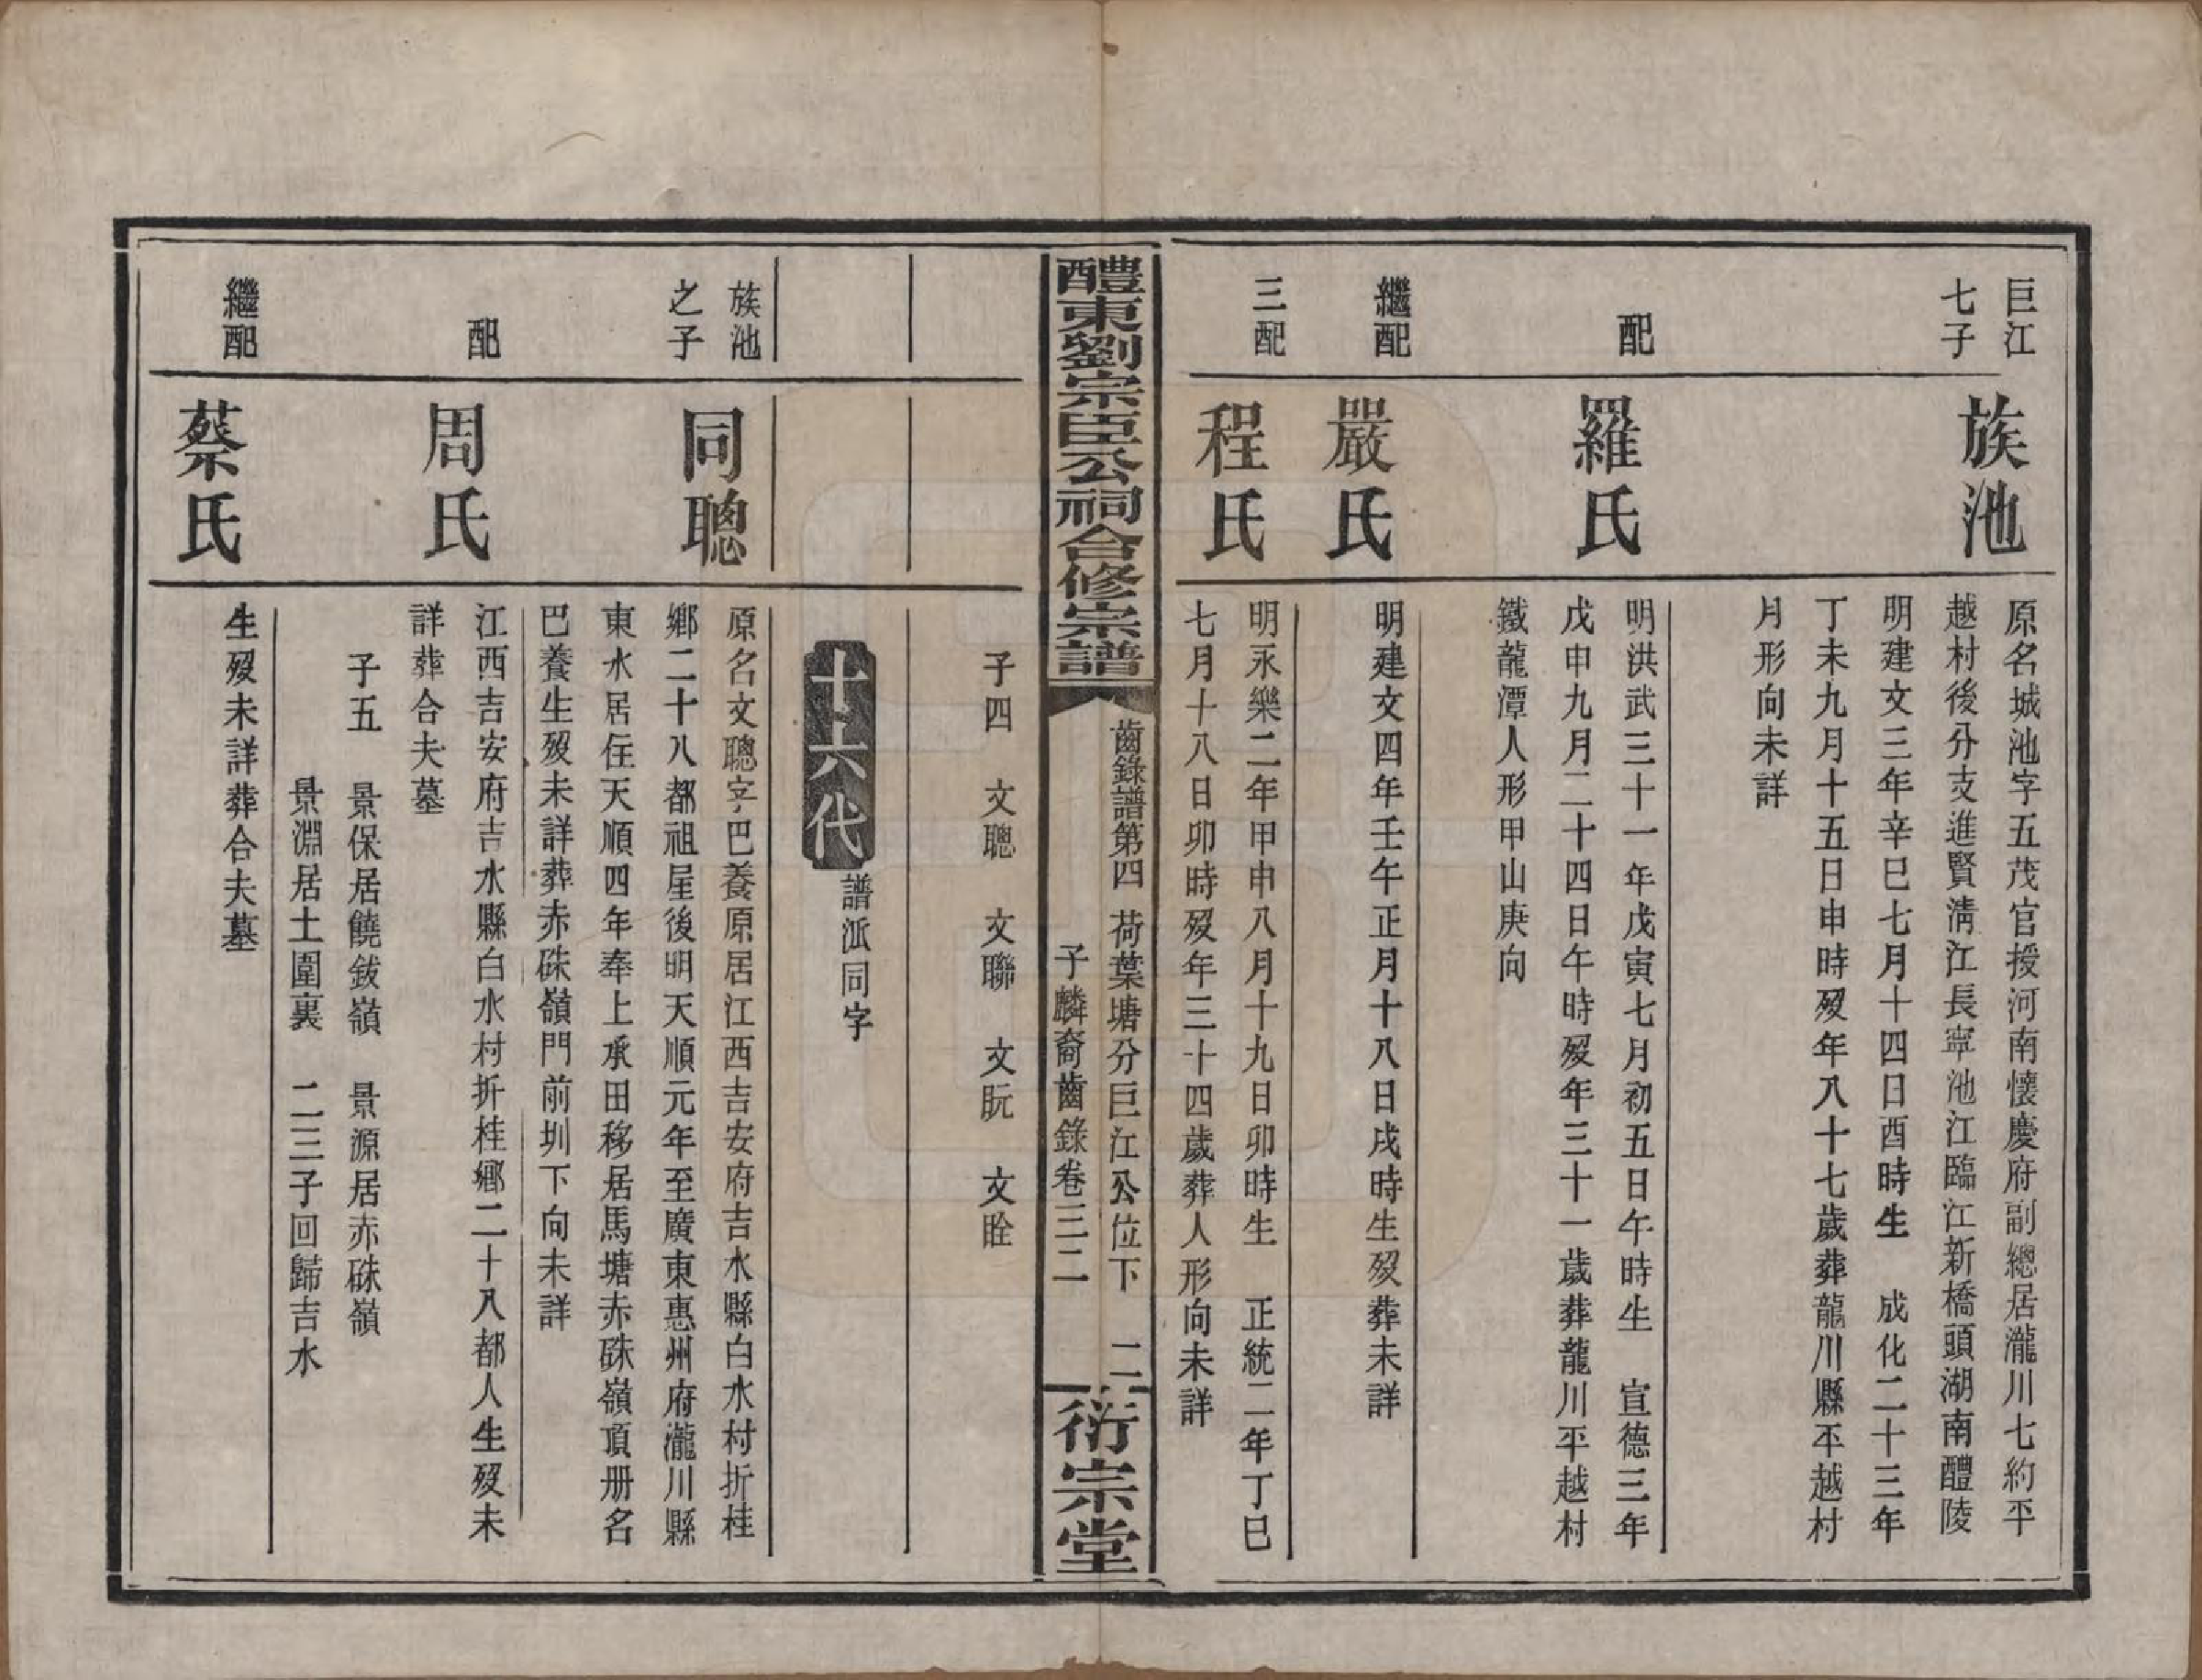 巨江
七子
族池
原名城池字五茂官授河南懷慶府副總居瀧川七約平
越村後分支進賢淸江長寧池江臨江新橋頭湖南醴陵
明建文三年辛巳七月十四日酉時生　成化二十三年
丁未九月十五日申時歿年八十七歲葬龍川縣平越村
月形向未詳
配
羅氏
明洪武三十一年戊寅七月初五日午時生　宣德三年
戊申九月二十四日午時歿年三十一歲葬龍川平越村
鐵龍潭人形甲山庚向
繼配
嚴氏
明建文四年壬午正月十八日戌時生歿葬未詳
三配
程氏
明永樂二年甲申八月十九日卯時生　正統二年丁巳
七月十八日卯時歿年三十四歲葬人形向未詳
醴東劉宗臣公祠合修宗譜
齒錄譜第四　荷葉塘分巨江公位下　二
子麟裔齒錄卷三二
衍宗堂
子四　文聰　文聯　文朊　文詮
十六代
譜派同字
族池
之子
同聰
原名文聰字巴養原居江西吉安府吉水縣白水村折桂
鄉二十八都祖屋後明天順元年至廣東惠州府瀧川縣
東水居住天順四年奉上承田移居馬塘赤硃嶺頂册名
巴養生歿未詳葬赤硃嶺門前圳下向未詳
配
周氏
江西吉安府吉水縣白水村折桂鄉二十八都人生歿未
詳葬合夫墓
子五　景保居饒鈸嶺　景源居赤硃嶺
景淵居土圍裏　二三子回歸吉水
繼配
蔡氏
生歿未詳葬合夫墓